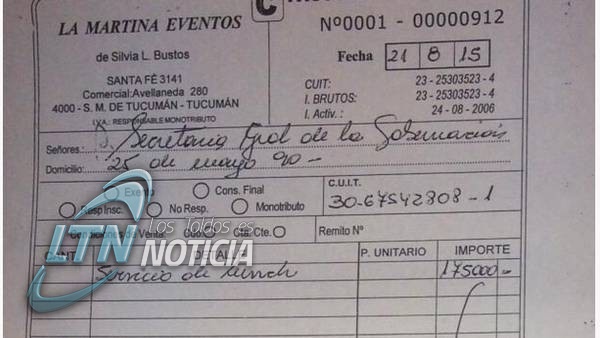 C
LA MARTINA EVENTOS
de Silvia L. Bustos
SANTA FÉ 3141
Comercial:Avellaneda 280
4000 - S. M. DE TUCUMÁN - TUCUMÁN
I.V.A.: RESPONSABLE MONOTRIBUTO
Nº0001 - 00000912
Fecha 21 8 15
CUIT: 23 - 25303523 - 4
I. BRUTOS: 23 - 25303523 - 4
I. Activ.: 24 - 08 - 2006
Señores: Secretaria Gral de la Gobernación
Domicilio: 25 de mayo 90 -
Exento Cons. Final
Resp Insc. No Resp. Monotributo
C.U.I.T.
30-67542808-1
Condiciones de Venta: Cdo. Cta. Cte. Remito Nº
CANT. DETALLE P. UNITARIO IMPORTE
Servicio de lunch 175000
LTN
Los Toldos es
NOTICIA